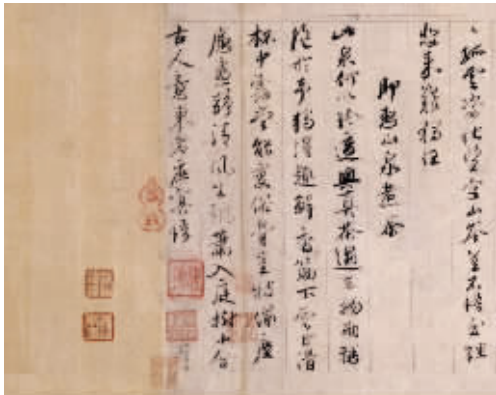 孤雲 空山
即惠山泉煮茶
此泉何以珍適與真茶遇在物兩稱
絕於予獨得趣鮮香筯下雲甘滋
杯中露當能變俗骨豈特湔塵
慮晝靜清風生飄蕭入庭樹中含
古人意來者庶冥悟